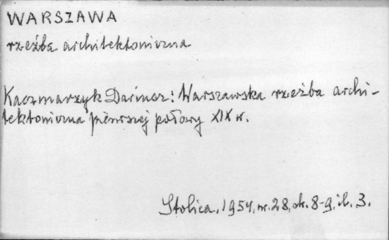 WARSZAWA
rzeźba architektoniczna
Kaczmarzyk Dariusz: Warszawska rzeźba archi-
tektoniczna pierwszej połowy XIX w.
Stolica, 1954, nr. 28, str. 8-9, il. 3.